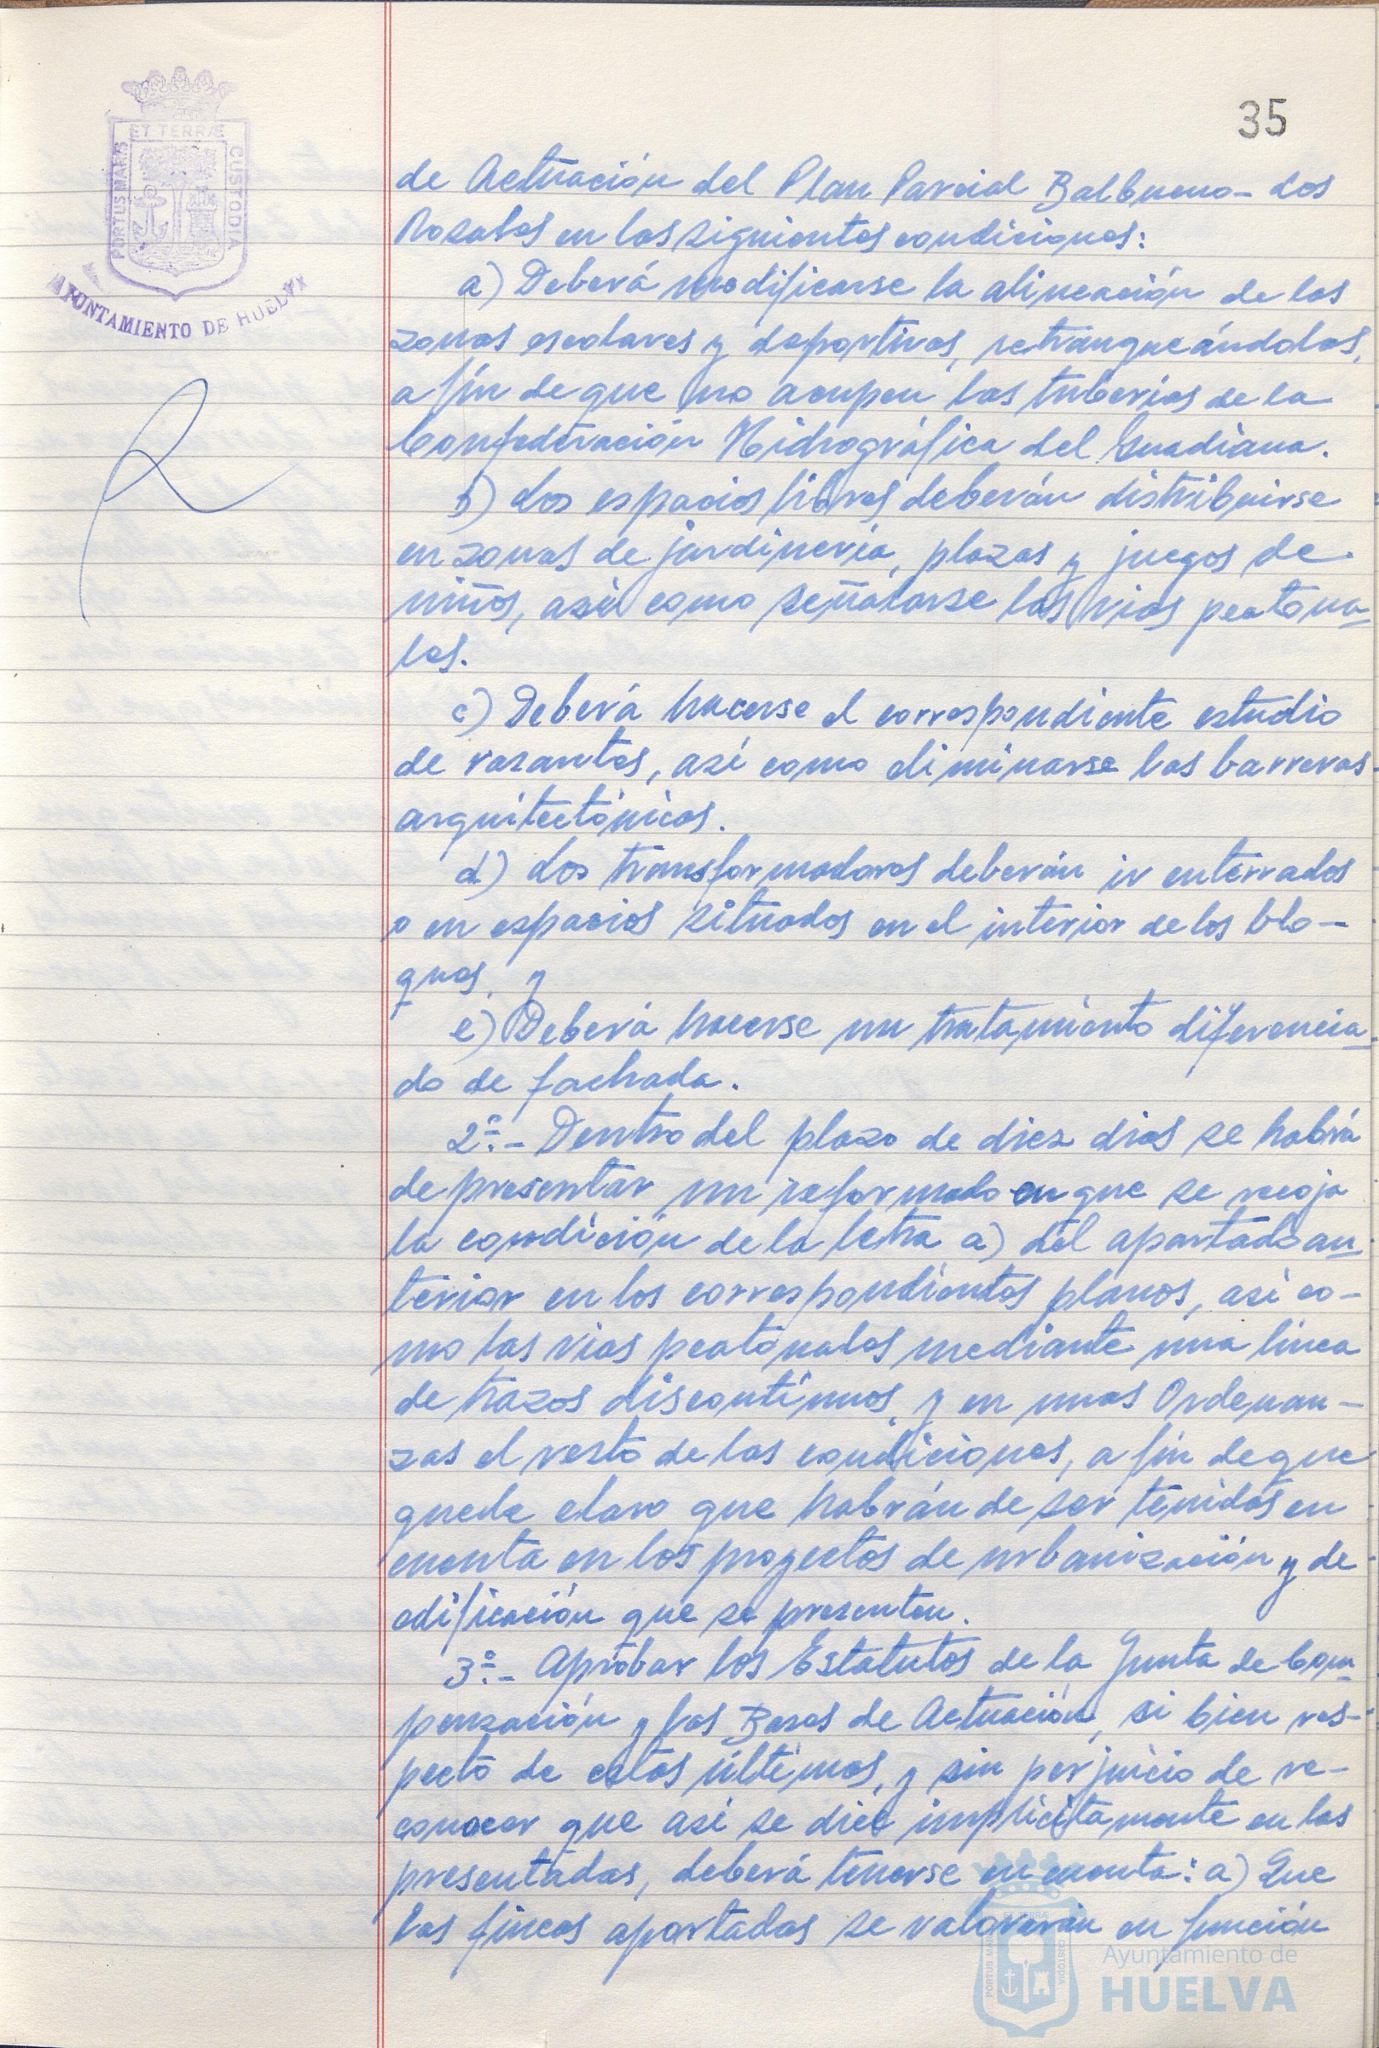 35
ET TERRÆ
PORTUS MARIS
CUSTODIA
AYUNTAMIENTO DE HUELVA
de Actuación del Plan Parcial Balbueno-Los
Rosales en las siguientes condiciones:
a) Deberá modificarse la alineación de las
zonas escolares y deportivas, retranqueándolas,
a fin de que no ocupen las tuberías de la
Confederación Hidrográfica del Guadiana.
b) Los espacios libres deberán distribuirse
en zonas de jardinería, plazas y juegos de
niños, así como señalarse las vías peatona-
les.
c) Deberá hacerse el correspondiente estudio
de rasantes, así como eliminarse las barreras
arquitectónicas.
d) Los transformadores deberán ir enterrados
o en espacios situados en el interior de los blo-
ques, y
e) Deberá hacerse un tratamiento diferencia-
do de fachada.
2º.- Dentro del plazo de diez días se habrá
de presentar un reformado en que se recoja
la condición de la letra a) del apartado an-
terior en los correspondientes planos, así co-
mo las vías peatonales mediante una línea
de trazos discontínuos, y en unas Ordenan-
zas el resto de las condiciones, a fin de que
quede claro que habrán de ser tenidas en
cuenta en los proyectos de urbanización y de
edificación que se presenten.
3º.- Aprobar los Estatutos de la Junta de Com-
pensación y las Bases de Actuación, si bien res-
pecto de estas últimas, y sin perjuicio de re-
conocer que así se dice implícitamente en las
presentadas, deberá tenerse en cuenta: a) Que
las fincas aportadas se valorarán en función
Ayuntamiento de
HUELVA